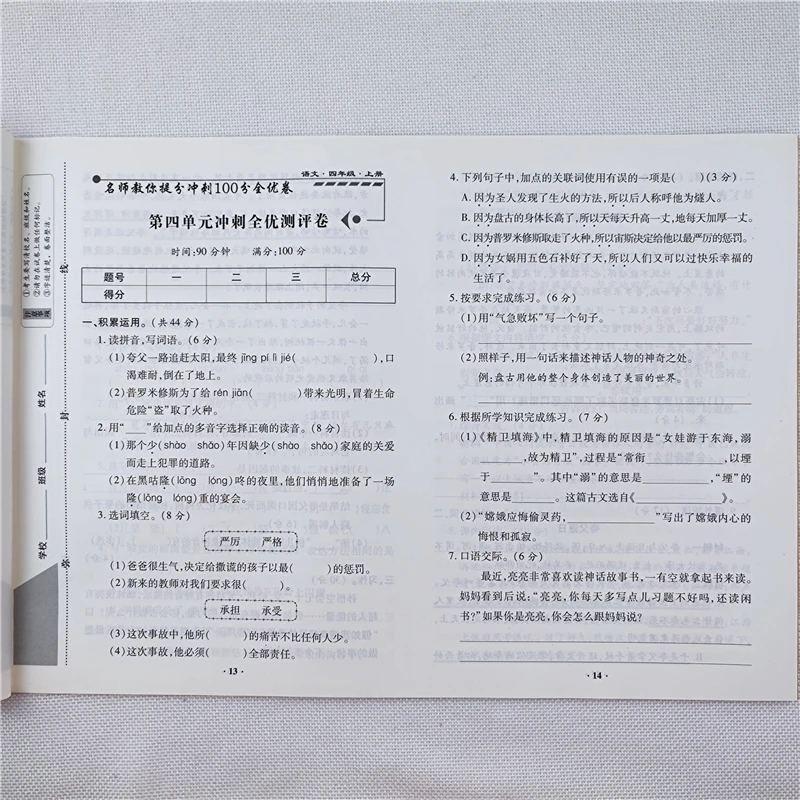 语文·四年级·上册
名师教你提分冲刺100分全优卷
第四单元冲刺全优测评卷
时间:90分钟 满分:100分
题号 一 二 三 总分
得分
一、积累运用。(共44分)
1. 读拼音,写词语。(6分)
(1)夸父一路追赶太阳,最终 jīng pí lì jié( ),口
渴难耐,倒在了地上。
(2)普罗米修斯为了给 rén jiān( )带来光明,冒着生命
危险“盗”取了火种。
2. 用“____”给加点的多音字选择正确的读音。(8分)
(1)那个少(shào shǎo)年因缺少(shào shǎo)家庭的关爱
而走上犯罪的道路。
(2)在黑咕隆(lōng lóng)咚的夜里,他们悄悄地准备了一场
隆(lōng lóng)重的宴会。
3. 选词填空。(8分)
严厉 严格
(1)爸爸很生气,决定给撒谎的孩子以最( )的惩罚。
(2)新来的教师对我们要求很( )。
承担 承受
(3)这次事故中,他所( )的痛苦不比任何人少。
(4)这次事故,他必须( )全部责任。
·13·
4. 下列句子中,加点的关联词使用有误的一项是( )(3分)
A. 因为圣人发现了生火的方法,所以后人称呼他为燧人。
B. 因为盘古的身体长高了,所以天每天升高一丈,地每天加厚一丈。
C. 因为普罗米修斯取走了火种,所以宙斯决定给他以最严厉的惩罚。
D. 因为女娲用五色石补好了天,所以人们又可以过快乐幸福的
生活了。
5. 按要求完成练习。(6分)
(1)用“气急败坏”写一个句子。
(2)照样子,用一句话来描述神话人物的神奇之处。
例:盘古用他的整个身体创造了美丽的世界。
6. 根据所学知识完成练习。(7分)
(1)《精卫填海》中,精卫填海的原因是“女娃游于东海,溺
______,故为精卫”,过程是“常衔______,以堙
于______”。其中“溺”的意思是______,“堙”的
意思是______。这篇古文选自《______》。
(2)“嫦娥应悔偷灵药,______”写出了嫦娥内心的
悔恨和孤寂。
7. 口语交际。(6分)
最近,亮亮非常喜欢读神话故事书,一有空就拿起书来读。
妈妈看到后说:“亮亮,你每天多写点儿习题不好吗,还读闲
书?”如果你是亮亮,你会怎么跟妈妈说?
·14·
①考生要写清校名、班级和姓名。
②请勿在试卷上做任何标记。
③字迹清楚,卷面整洁。
注意事项
学校 班级 姓名
弥 封 线